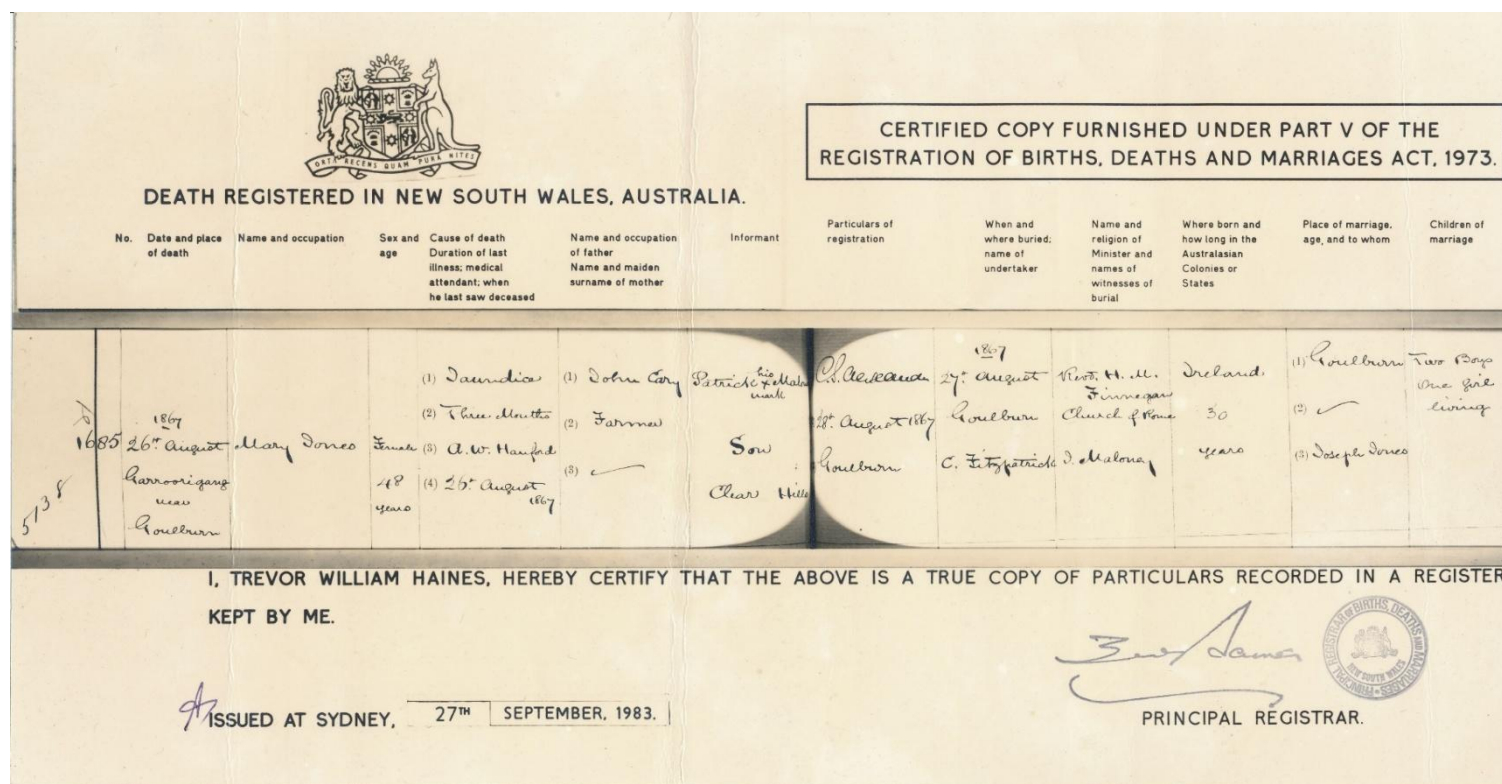 ORTA RECENS QUAM PURA NITES
DEATH REGISTERED IN NEW SOUTH WALES, AUSTRALIA.
CERTIFIED COPY FURNISHED UNDER PART V OF THE
REGISTRATION OF BIRTHS, DEATHS AND MARRIAGES ACT, 1973.
No.
Date and place
of death
Name and occupation
Sex and
age
Cause of death
Duration of last
illness; medical
attendant; when
he last saw deceased
Name and occupation
of father
Name and maiden
surname of mother
Informant
Particulars of
registration
When and
where buried;
name of
undertaker
Name and
religion of
Minister and
names of
witnesses of
burial
Where born and
how long in the
Australasian
Colonies or
States
Place of marriage,
age, and to whom
Children of
marriage
5138
1685
1867
26th August
Garroorigang
near
Goulburn
Mary Jones
Female
48
years
(1) Jaundice
(2) Three Months
(3) A. W.
(4) 26th August
1867
(1) John Cary
(2) Farmer
(3) ✓
Patrick his x
mark
Son
Clear Hills
28th August 1867
Goulburn
1867
27th August
Goulburn
C. Fitzpatrick
Revd. H. M.
Finnegan
Church of Rome
J. Maloney
Ireland
30
years
(1) Goulburn
(2) ✓
(3) Joseph Jones
Two Boys
One girl
living
I, TREVOR WILLIAM HAINES, HEREBY CERTIFY THAT THE ABOVE IS A TRUE COPY OF PARTICULARS RECORDED IN A REGISTER
KEPT BY ME.
ISSUED AT SYDNEY, 27TH SEPTEMBER, 1983.
PRINCIPAL REGISTRAR OF BIRTHS, DEATHS AND MARRIAGES
NEW SOUTH WALES
PRINCIPAL REGISTRAR.